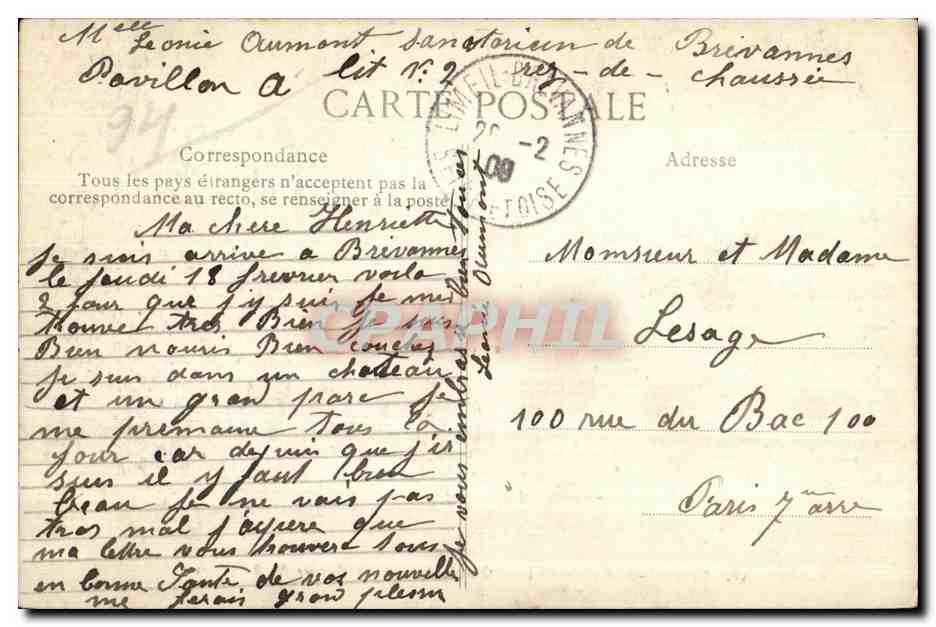 Melle Leonie Aumont sanatorium de Brévannes
Pavillon A lit N.º 2 rez-de-chaussée
94
CARTE POSTALE
LIMEIL-BRÉVANNES
-2
09
ET OISE
Correspondance
Adresse
Tous les pays étrangers n'acceptent pas la
correspondance au recto, se renseigner à la poste
Ma chere Henriette
Je suis arrive a Brévannes
le jeudi 18 fevrier voila
2 jour que j y suis Je me
trouve tres Bien Je suis
Bien nouris Bien couchez
Je suis dans un chateau
et un grand parc Je
me promaine tous la
jour car depuis que j'ir
suis il y faut bien
beau Je ne vais pas
tros mal J'aspere que
ma lettre vous trouvera tous
en bonne Santé de vos nouvelle
me ferais grand plesir
Je vous embrasse bien tous
Leonie Aumont
Monsieur et Madame
Lesage
100 rue du Bac 100
Paris 7 arre
CPAPHIL